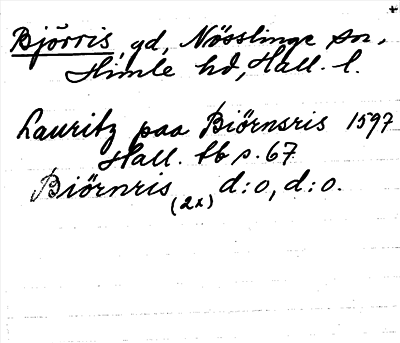 +
Björris, gd, Nösslinge sn,
Himle hd, Hall. l.
Lauritz paa Biörnsris 1597
Hall. tb s. 67
Biörnris (2x) d:o, d:o.